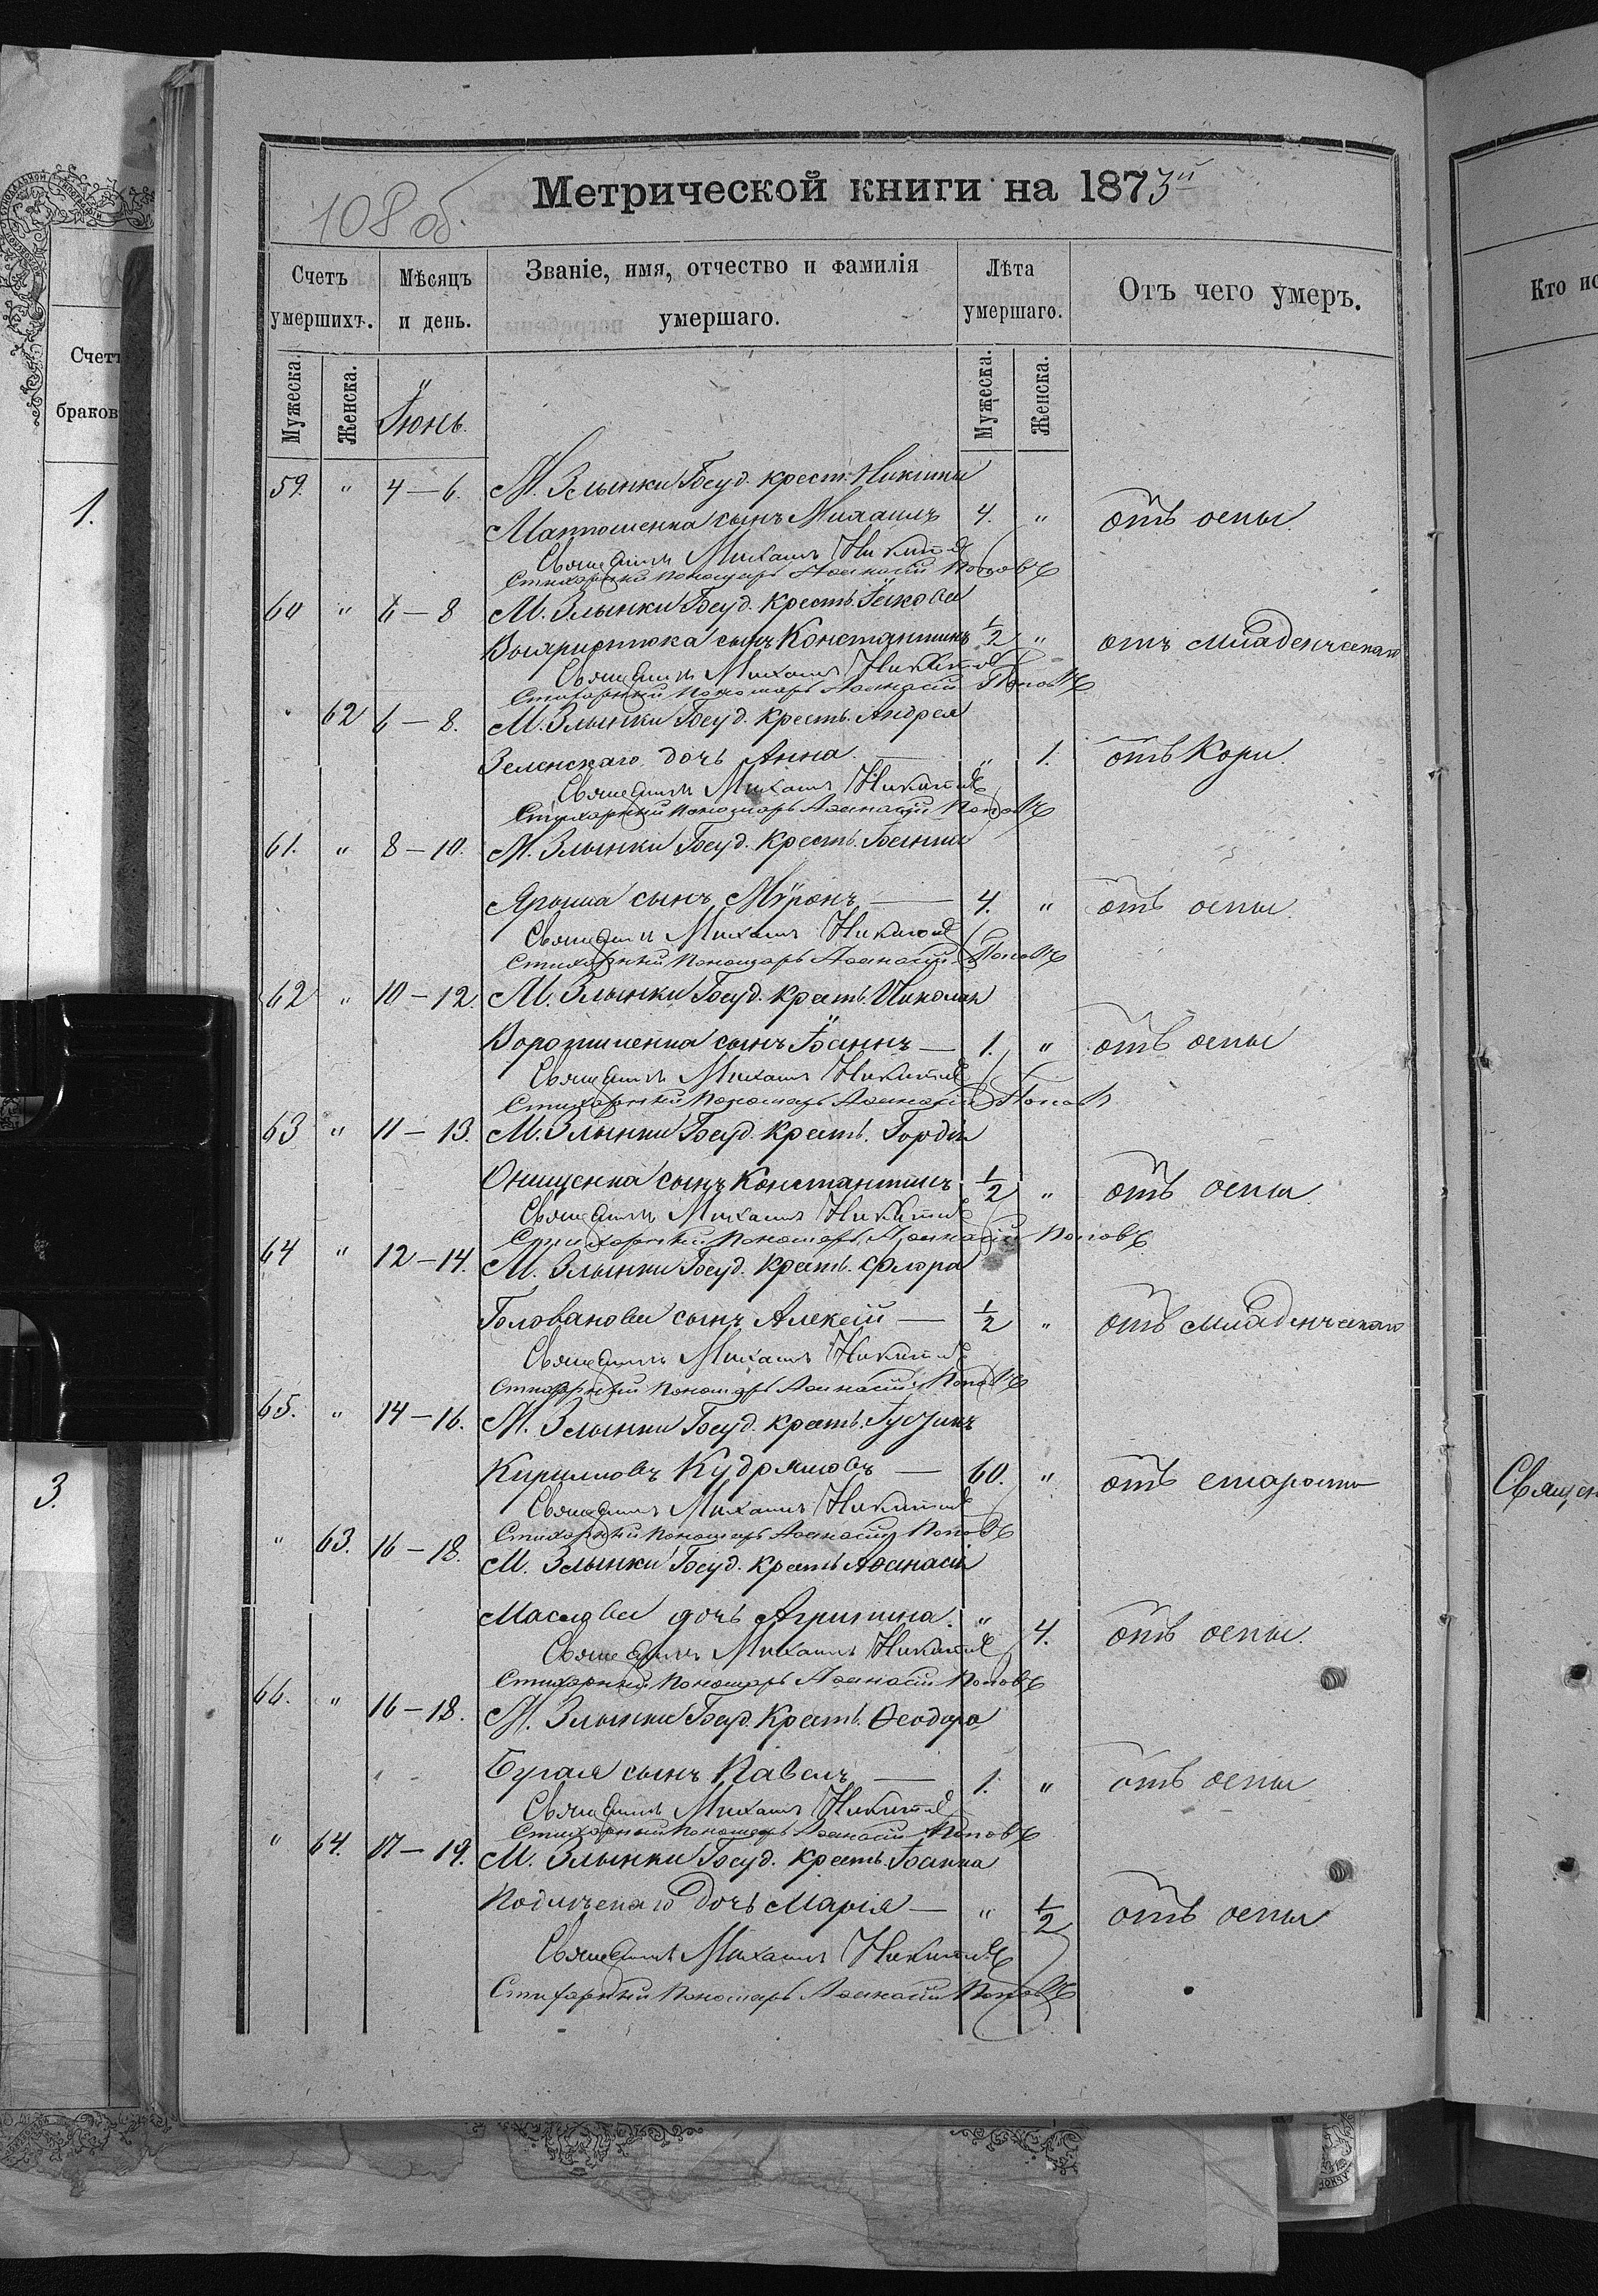 108 об.
Метрической книги на 1873й
Счетъ умершихъ.
Мѣсяцъ и день.
Званіе, имя, отчество и фамилія умершаго.
Лѣта умершаго.
Отъ чего умеръ.
Мужеска.
Женска.
Іюнь.
Мужеска.
Женска.
59. " 4–6. М. Злынки Госуд. крест. Никиты
Матюшенка сынъ Михаилъ 4. " отъ оспы.
Михаилъ Никитинъ
Стихарный Пономарь Аѳанасій Поповъ
60 " 6–8 М. Злынки Госуд. Крестъ. Іякова
сынъ Константинъ 1/2 " отъ младенческаго
Михаилъ Никитинъ
Стихарный Пономарь Аѳанасій Поповъ
" 62 6–8. М. Злынки Госуд. Крестъ. Андрея
Зеленскаго дочь Анна — " 1. отъ Кори.
Михаилъ Никитинъ
Стихарный Пономарь Аѳанасій Поповъ
61. " 8–10. М. Злынки Госуд. Крестъ. Іоанна
сынъ Мѵронъ — 4. " отъ оспы.
Михаилъ Никитинъ
Стихарный Пономарь Аѳанасій Поповъ
62 " 10–12. М. Злынки Госуд. Крестъ. Николая
сынъ Іоаннъ — 1. " отъ оспы
Михаилъ Никитинъ
Стихарный Пономарь Аѳанасій Поповъ
63 " 11–13. М. Злынки Госуд. Крестъ. Гордія
Онищенка сынъ Константинъ 1/2 " отъ оспы
Михаилъ Никитинъ
Стихарный Пономарь Аѳанасій Поповъ
64 " 12–14. М. Злынки Госуд. Крестъ. Флора
Голованова сынъ Алексій — 1/2 " отъ младенческаго
Михаилъ Никитинъ
Стихарный Пономарь Аѳанасій Поповъ
65. " 14–16. М. Злынки Госуд. Крестъ. Іустинъ
Кирилловъ Кудряшовъ — 60. " отъ старости
Михаилъ Никитинъ
Стихарный Пономарь Аѳанасій Поповъ
" 63. 16–18. М. Злынки Госуд. Крестъ Аѳанасія
Маслова дочь Агрипина. " 4. отъ оспы.
Михаилъ Никитинъ
Стихарный Пономарь Аѳанасій Поповъ
66. " 16–18. М. Злынки Госуд. Крестъ. Ѳеодора
Бугая сынъ Павелъ — 1. " отъ оспы
Михаилъ Никитинъ
Стихарный Пономарь Аѳанасій Поповъ
" 64. 17–19. М. Злынки Госуд. Крестъ. Іоанна
дочь Марія — " 1/2 отъ оспы
Михаилъ Никитинъ
Стихарный Пономарь Аѳанасій Поповъ
Счетъ
браков
1.
3.
Кто ис
Священ